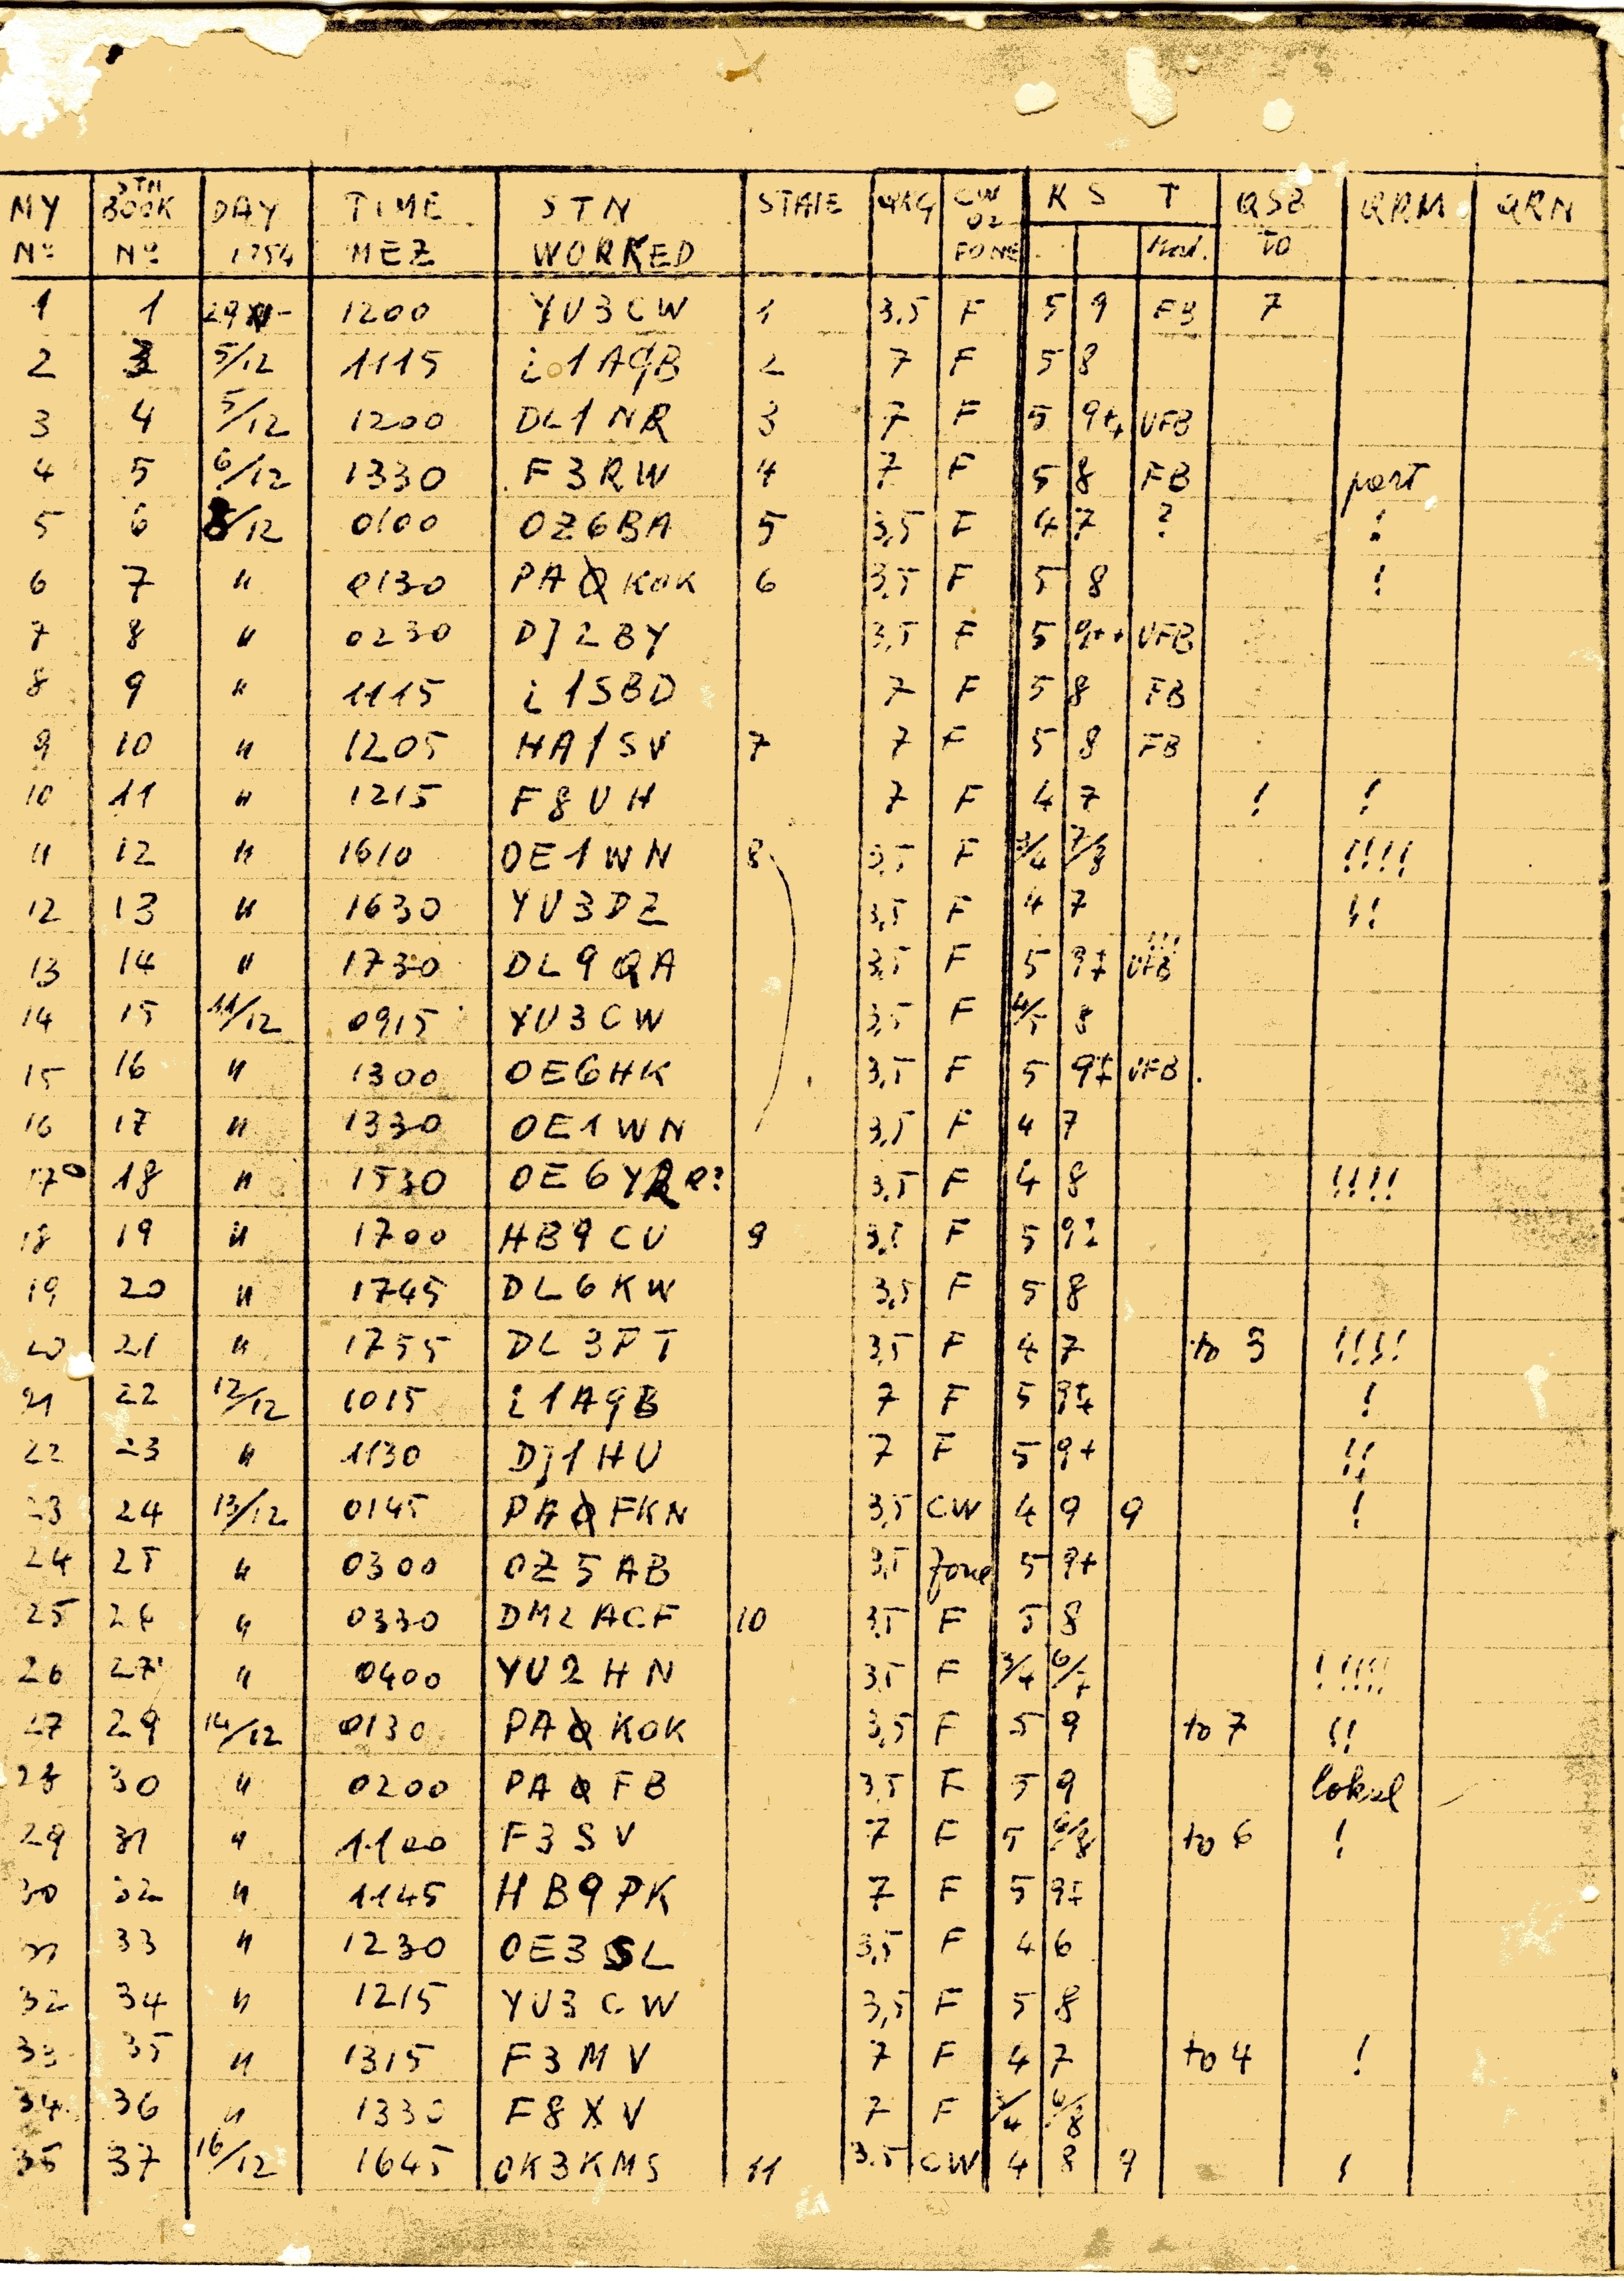 MY STN BOOK DAY TIME STN STATE WKG CW OZ R S T QSB QRM QRN
Nº Nº 1954 MEZ WORKED FONE Mod. TO
1 1 29 1200 YU3CW 1 3,5 F 5 9 FB 7
2 5/12 1115 i1AQB 2 7 F 5 8
3 4 5/12 1200 DL1NR 3 7 F 5 9++ VFB
4 5 6/12 1330 F3RW 4 7 F 5 8 FB part
5 6 8/12 0100 OZ6BA 5 3,5 F 4 7 ? !
6 7 " 0130 PAØKOK 6 3,5 F 5 8 !
7 8 " 0230 DJ2BY 3,5 F 5 9++ VFB
8 9 " 1115 i1SBD 7 F 5 8 FB
9 10 " 1205 HA1SV 7 7 F 5 8 FB
10 11 " 1215 F8UH 7 F 4 7 ! !
11 12 " 1610 OE1WN 8 3,5 F 3/4 7/8 !!!!
12 13 " 1630 YU3DZ 3,5 F 4 7 !!
13 14 " 1730 DL9QA 3,5 F 5 9++ VFB !!!
14 15 11/12 0915 YU3CW 3,5 F 4/5 8
15 16 " 1300 OE6HK 3,5 F 5 9++ VFB.
16 17 " 1330 OE1WN 3,5 F 4 7
17 18 " 1530 OE6YR R? 3,5 F 4 8 !!!!
18 19 " 1700 HB9CU 9 3,5 F 5 9
19 20 " 1745 DL6KW 3,5 F 5 8
20 21 " 1755 DL3PT 3,5 F 4 7 to 3 !!!!
21 22 12/12 1015 i1AQB 7 F 5 9++ !
22 23 " 1130 DJ1HU 7 F 5 9+ !!
23 24 13/12 0145 PAØFKN 3,5 CW 4 9 9 !
24 25 " 0300 OZ5AB 3,5 fone 5 9+
25 26 " 0330 DM2ACF 10 3,5 F 5 8
26 27 " 0400 YU2HN 3,5 F 3/4 6/7 !!!!!
27 29 14/12 0130 PAØKOK 3,5 F 5 9 to 7 !!
28 30 " 0200 PAØFB 3,5 F 5 9 lokal
29 31 " 1100 F3SV 7 F 5 6/8 to 6 !
30 32 " 1145 HB9PK 7 F 5 9+
31 33 " 1230 OE3SL 3,5 F 4 6
32 34 " 1215 YU3CW 3,5 F 5 8
33 35 " 1315 F3MV 7 F 4 7 to 4 !
34 36 " 1330 F8XV 7 F 3/4 6/8
35 37 16/12 1645 OK3KMS 11 3.5 CW 4 8 9 !